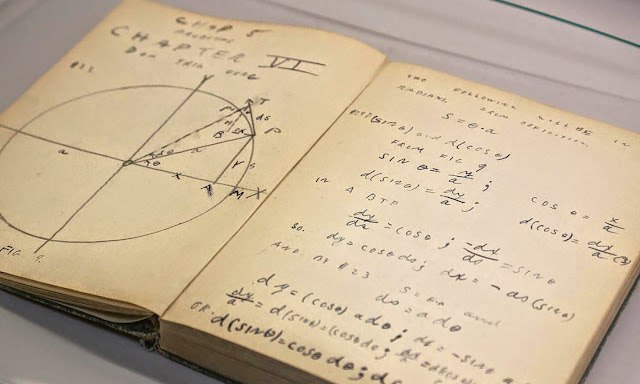 CHAP 5
CHAPTER VI
T
ds
B
P
a
a
x
A
M
X
Y
FIG 9
THE FOLLOWING WILL BE IN
RADIANS FROM DEFINITION
S = θ·a
d(sin θ) and d(cos θ)
FROM FIG 9
SIN θ = y/a ; COS θ = x/a
d(sin θ) = dy/a ; d(cos θ) = dx/a
IN A BTP
dy/ds = cos θ ; -dx/ds = SIN θ
SO. dy = cos θ ds ; dx = - ds (sin θ)
AND BY #23 S = θa and
ds = a dθ
dy = (cos θ) a dθ ; dx = - sin θ a
dy/a = d(sin θ) = (cos θ) dθ ;
OR: d(sin θ) = cos θ dθ ;